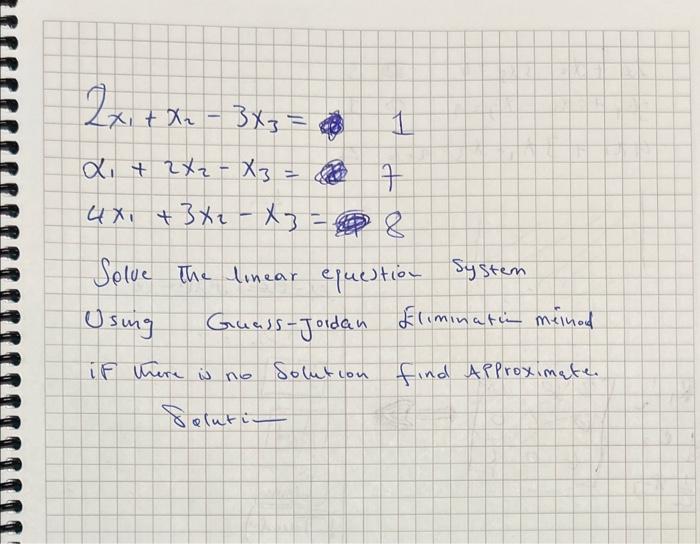 2x₁ + x₂ - 3x₃ = 1
x₁ + 2x₂ - x₃ = 7
4x₁ + 3x₂ - x₃ = 8
Solve The linear equestion System
Using Guass-Jordan Elimination method
iF there is no Solution find APProximate.
Solution